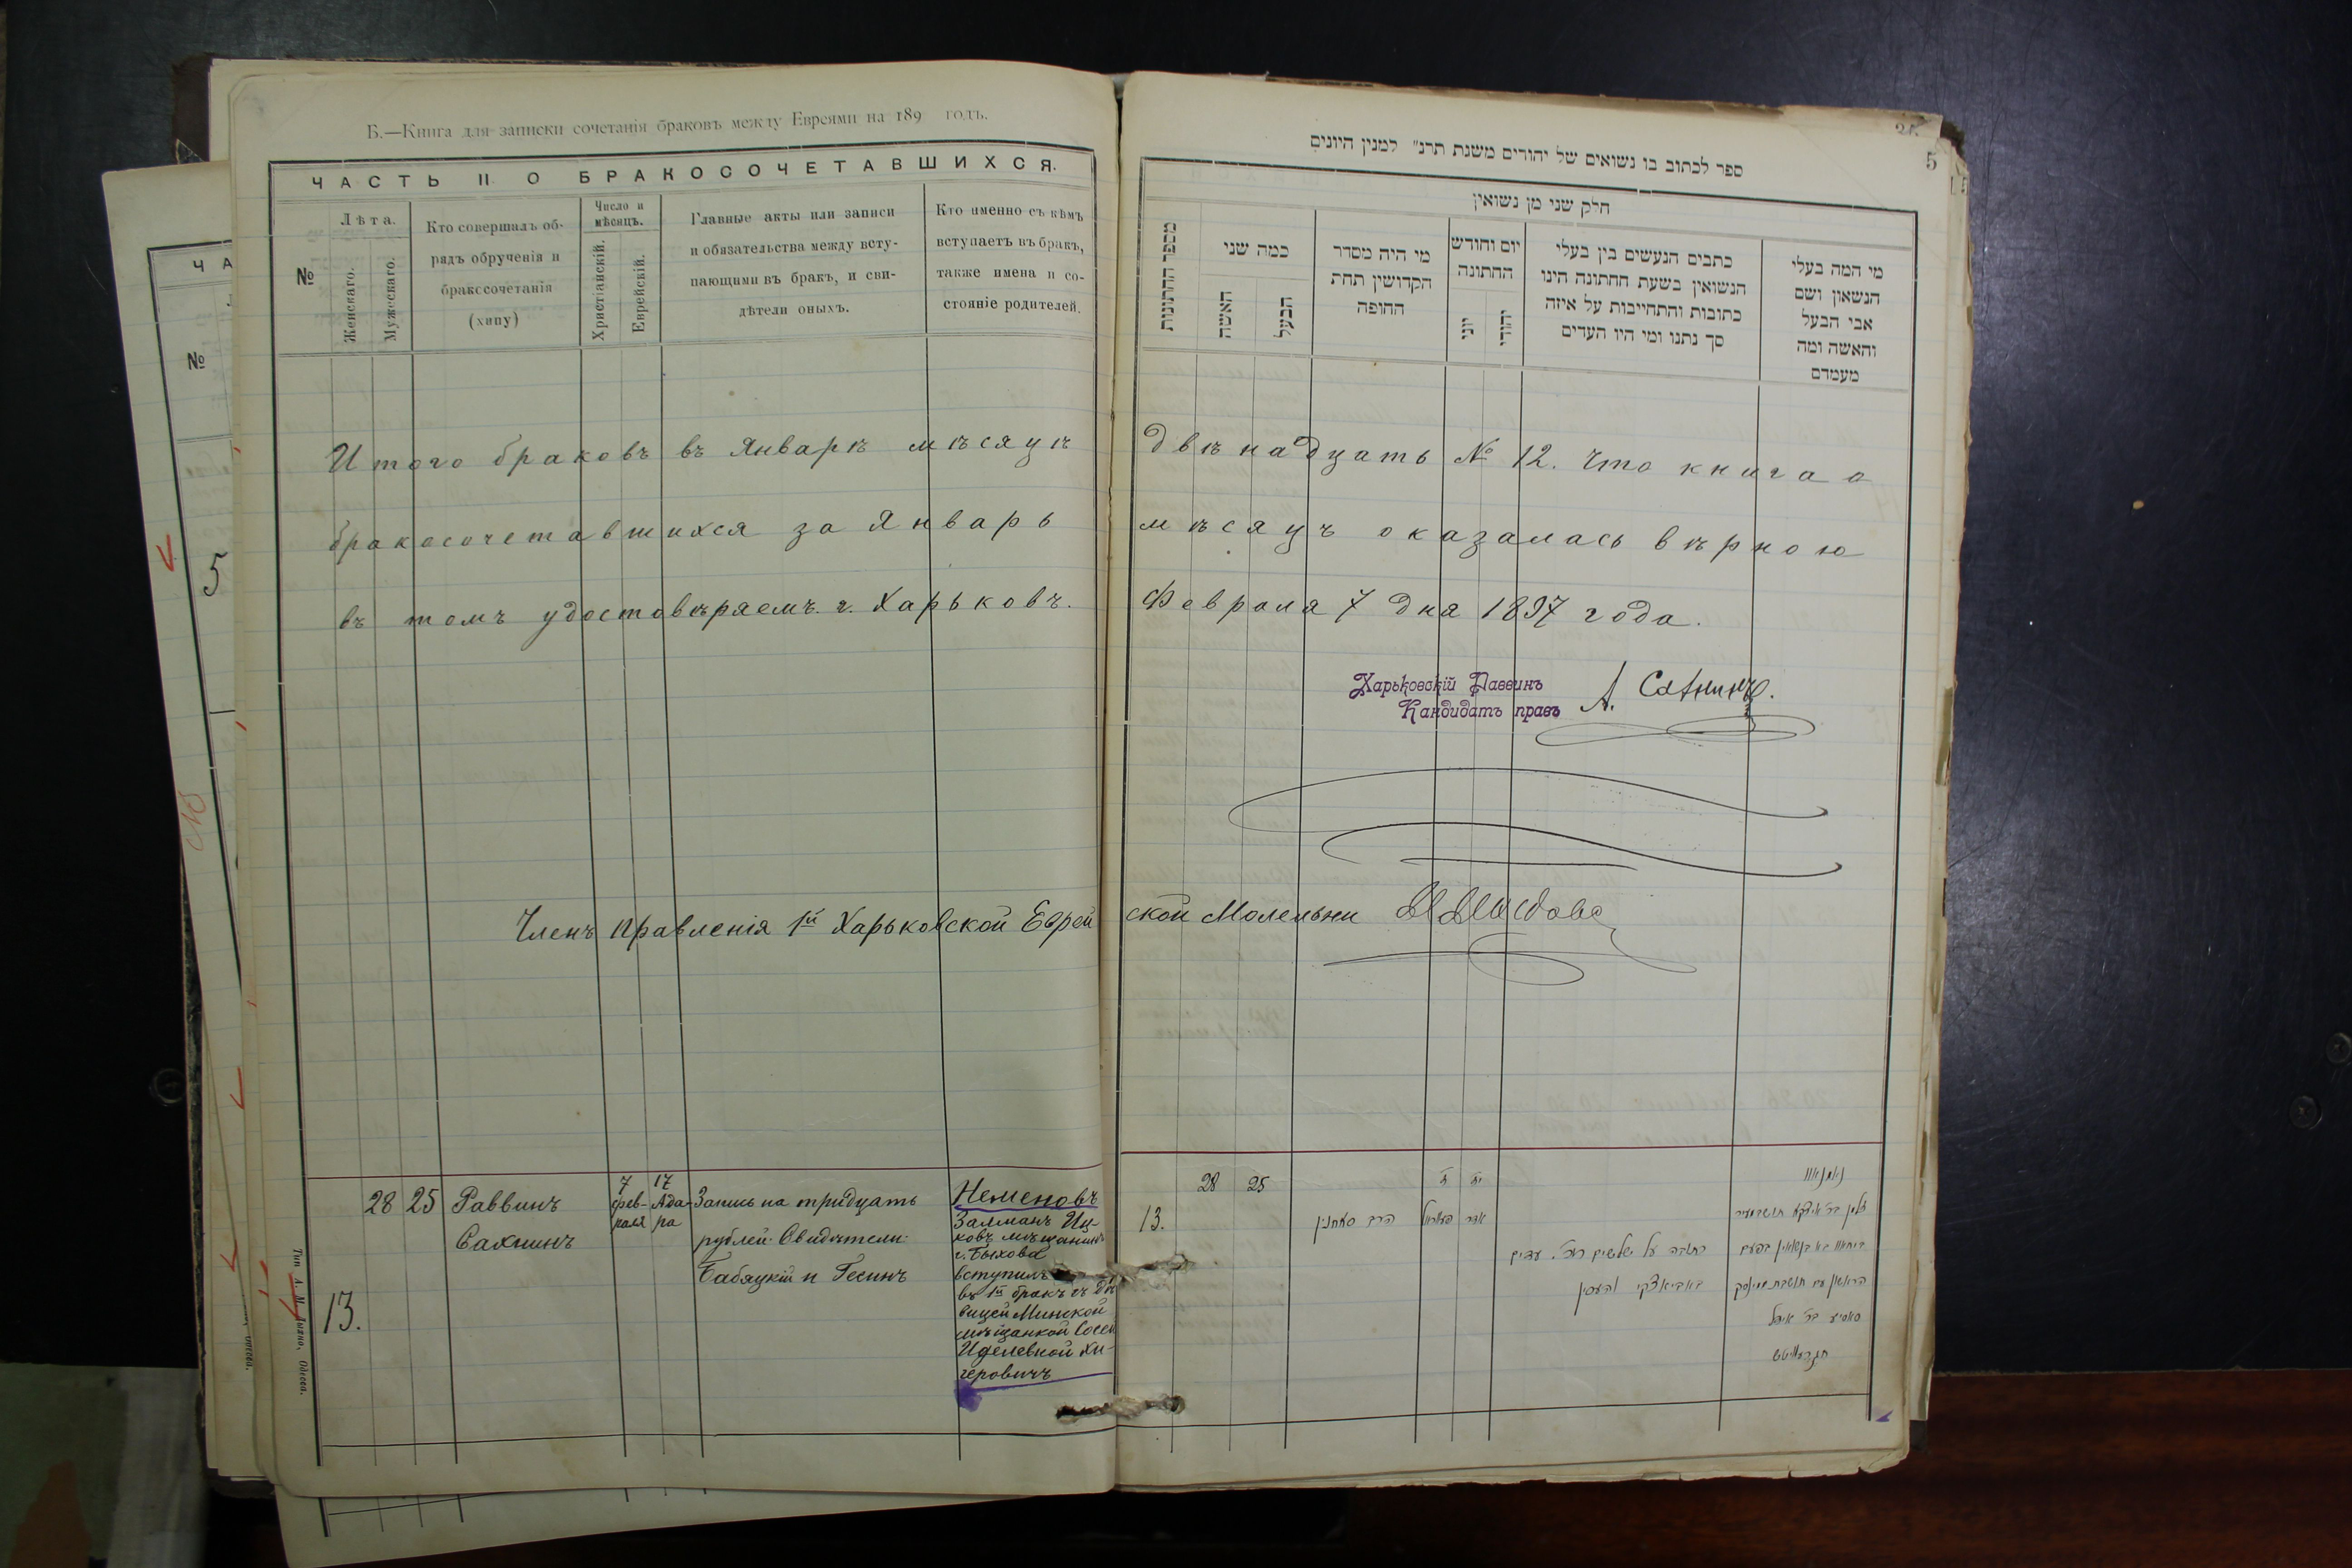 Б.—Книга для записки сочетанія браковъ между Евреями на 189 годъ.
ЧАСТЬ II О БРАКОСОЧЕТАВШИХСЯ.
№
Лѣта.
Женскаго.
Мужескаго.
Кто совершалъ об-
рядъ обрученія и
бракосочетанія
(хипу)
Число и
мѣсяцъ.
Христіанскій.
Еврейскій.
Главные акты или записи
и обязательства между всту-
пающими въ бракъ, и сви-
дѣтели оныхъ.
Кто именно съ кѣмъ
вступаетъ въ бракъ,
также имена и со-
стояніе родителей.
Итого браковъ въ Январѣ мѣсяцѣ
бракосочетавшихся за Январь
въ томъ удостовѣряемъ. г. Харьковъ.
Членъ Правленія 1й Харьковской Еврей
13.
28
25
Раввинъ
Сахнинъ
7
фев-
раля
17
Ада-
ра
Запись на тридцать
рублей. Свидѣтели:
Бабяцкій и Гесинъ
Неменовъ
Залманъ Иц-
ковъ мѣщанинъ
г. Быхова
вступилъ
въ 1й бракъ съ дѣ
вицей Минской
мѣщанкой Сосей
Иделевной Хи-
геровичъ
21.
5
ספר לכתוב בו נשואים של יהודים משנת תרנ״ למנין היונים
חלק שני מן נשואין
מספר החתונות
כמה שני
האשה
הבעל
מי היה מסדר
הקדושין תחת
החופה
יום וחודש
החתונה
יוני
יהודי
כתבים הנעשים בין בעלי
הנשואין בשעת חחתונה הינו
כתובות והתחייבות על איזה
סך נתנו ומי היו העדים
מי המה בעלי
הנשאון ושם
אבי הבעל
והאשה ומה
מעמדם
двѣнадцать № 12. Что книга о
мѣсяцъ оказалась вѣрною
Февраля 7 дня 1897 года.
Харьковскій Раввинъ
Кандидатъ правъ
А. Сахнинъ.
ской Молельни
13.
28
25
הרב סאחנין
אדר
כתובה על שלשים רו״כ. עדים
באביאצקי והעסין
№
5